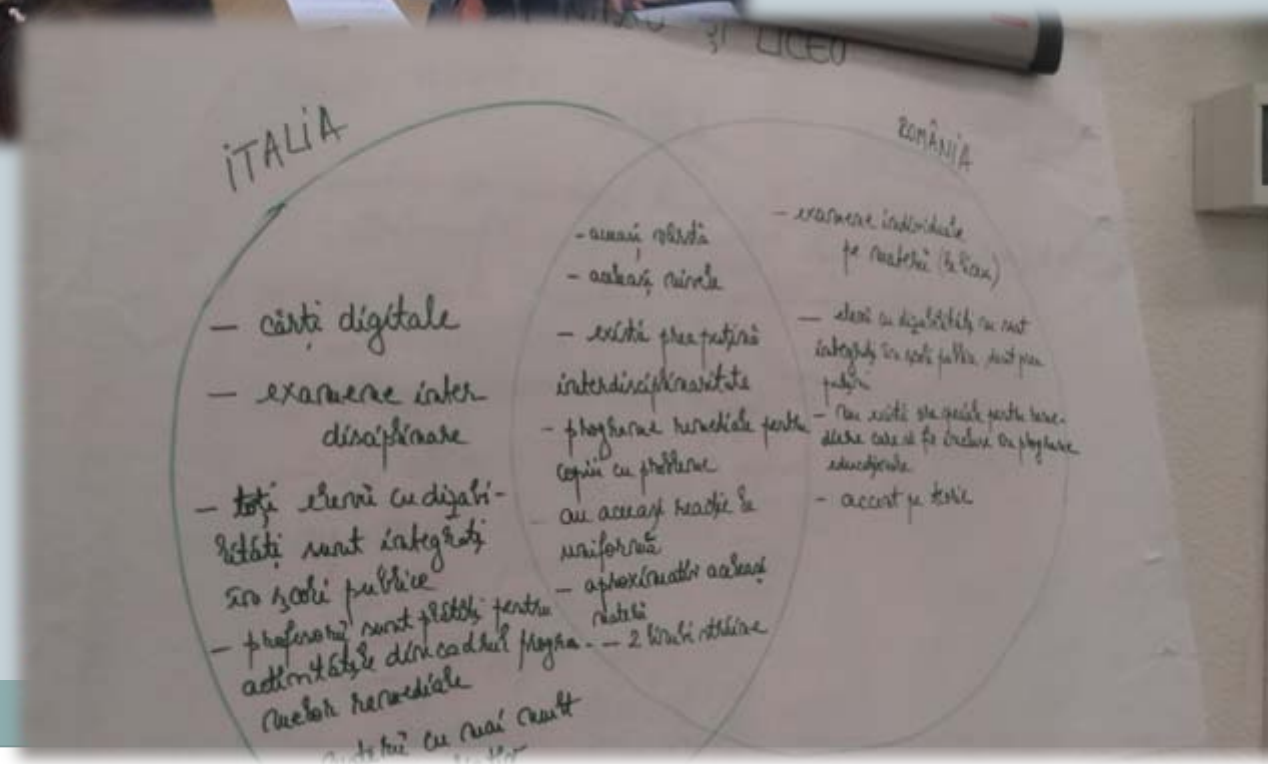 ȘI LICEU
ITALIA
- cărți digitale
- examene inter
disciplinare
- toți elevii cu dizabi-
lități sunt integrați
în școli publice
- profesorii sunt plătiți pentru
activitățile din cadrul progra-
melor remediale
cu mai mult
- aceeași vârstă
- aceleași nivele
- există prea puțină
interdisciplinaritate
- programe remediale pentru
copiii cu probleme
au aceeași reacție la
uniformă
- aproximativ aceleași
materii
- 2 limbi străine
ROMÂNIA
- examene individuale
pe materii (la liceu)
- elevii cu dizabilități sunt
integrați în școli publice sunt prea
puțini
- Nu există ore speciale pentru reme-
diere care să fie incluse în programe
educaționale
- accent pe teorie